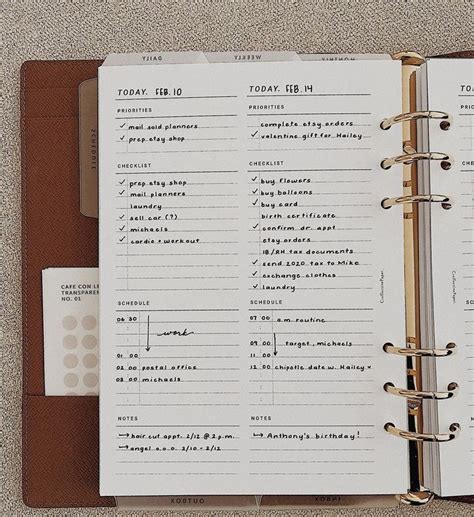 DAILY
WEEKLY
MONTHLY
SCHEDULE
TODAY. FEB. 10
PRIORITIES
✓ mail sold planners
✓ prep etsy shop
CHECKLIST
✓ prep etsy shop
✓ mail planners
laundry
✓ sell car (?)
✓ michaels
✓ cardio + workout
SCHEDULE
06 30
work
01 00
02 00 postal office
03 00 michaels
NOTES
→ hair cut appt. 2/12 @ 2 p.m.
→ angel o.o.o. 2/10 - 2/12
TODAY. FEB. 14
PRIORITIES
complete etsy orders
✓ valentine gift for Hailey
CHECKLIST
✓ buy flowers
✓ buy balloons
✓ buy card
birth certificate
✓ confirm dr. appt
etsy orders
1B/RH tax documents
✓ send 2020 tax to Mike
✓ exchange clothes
✓ laundry
SCHEDULE
07 00 a.m. routine
09 00 target, michaels
11 00
12 00 chipotle date w. Hailey ×
NOTES
→ Anthony's birthday!
CAFE CON LE
TRANSPAREN
NO. 01
INBOX